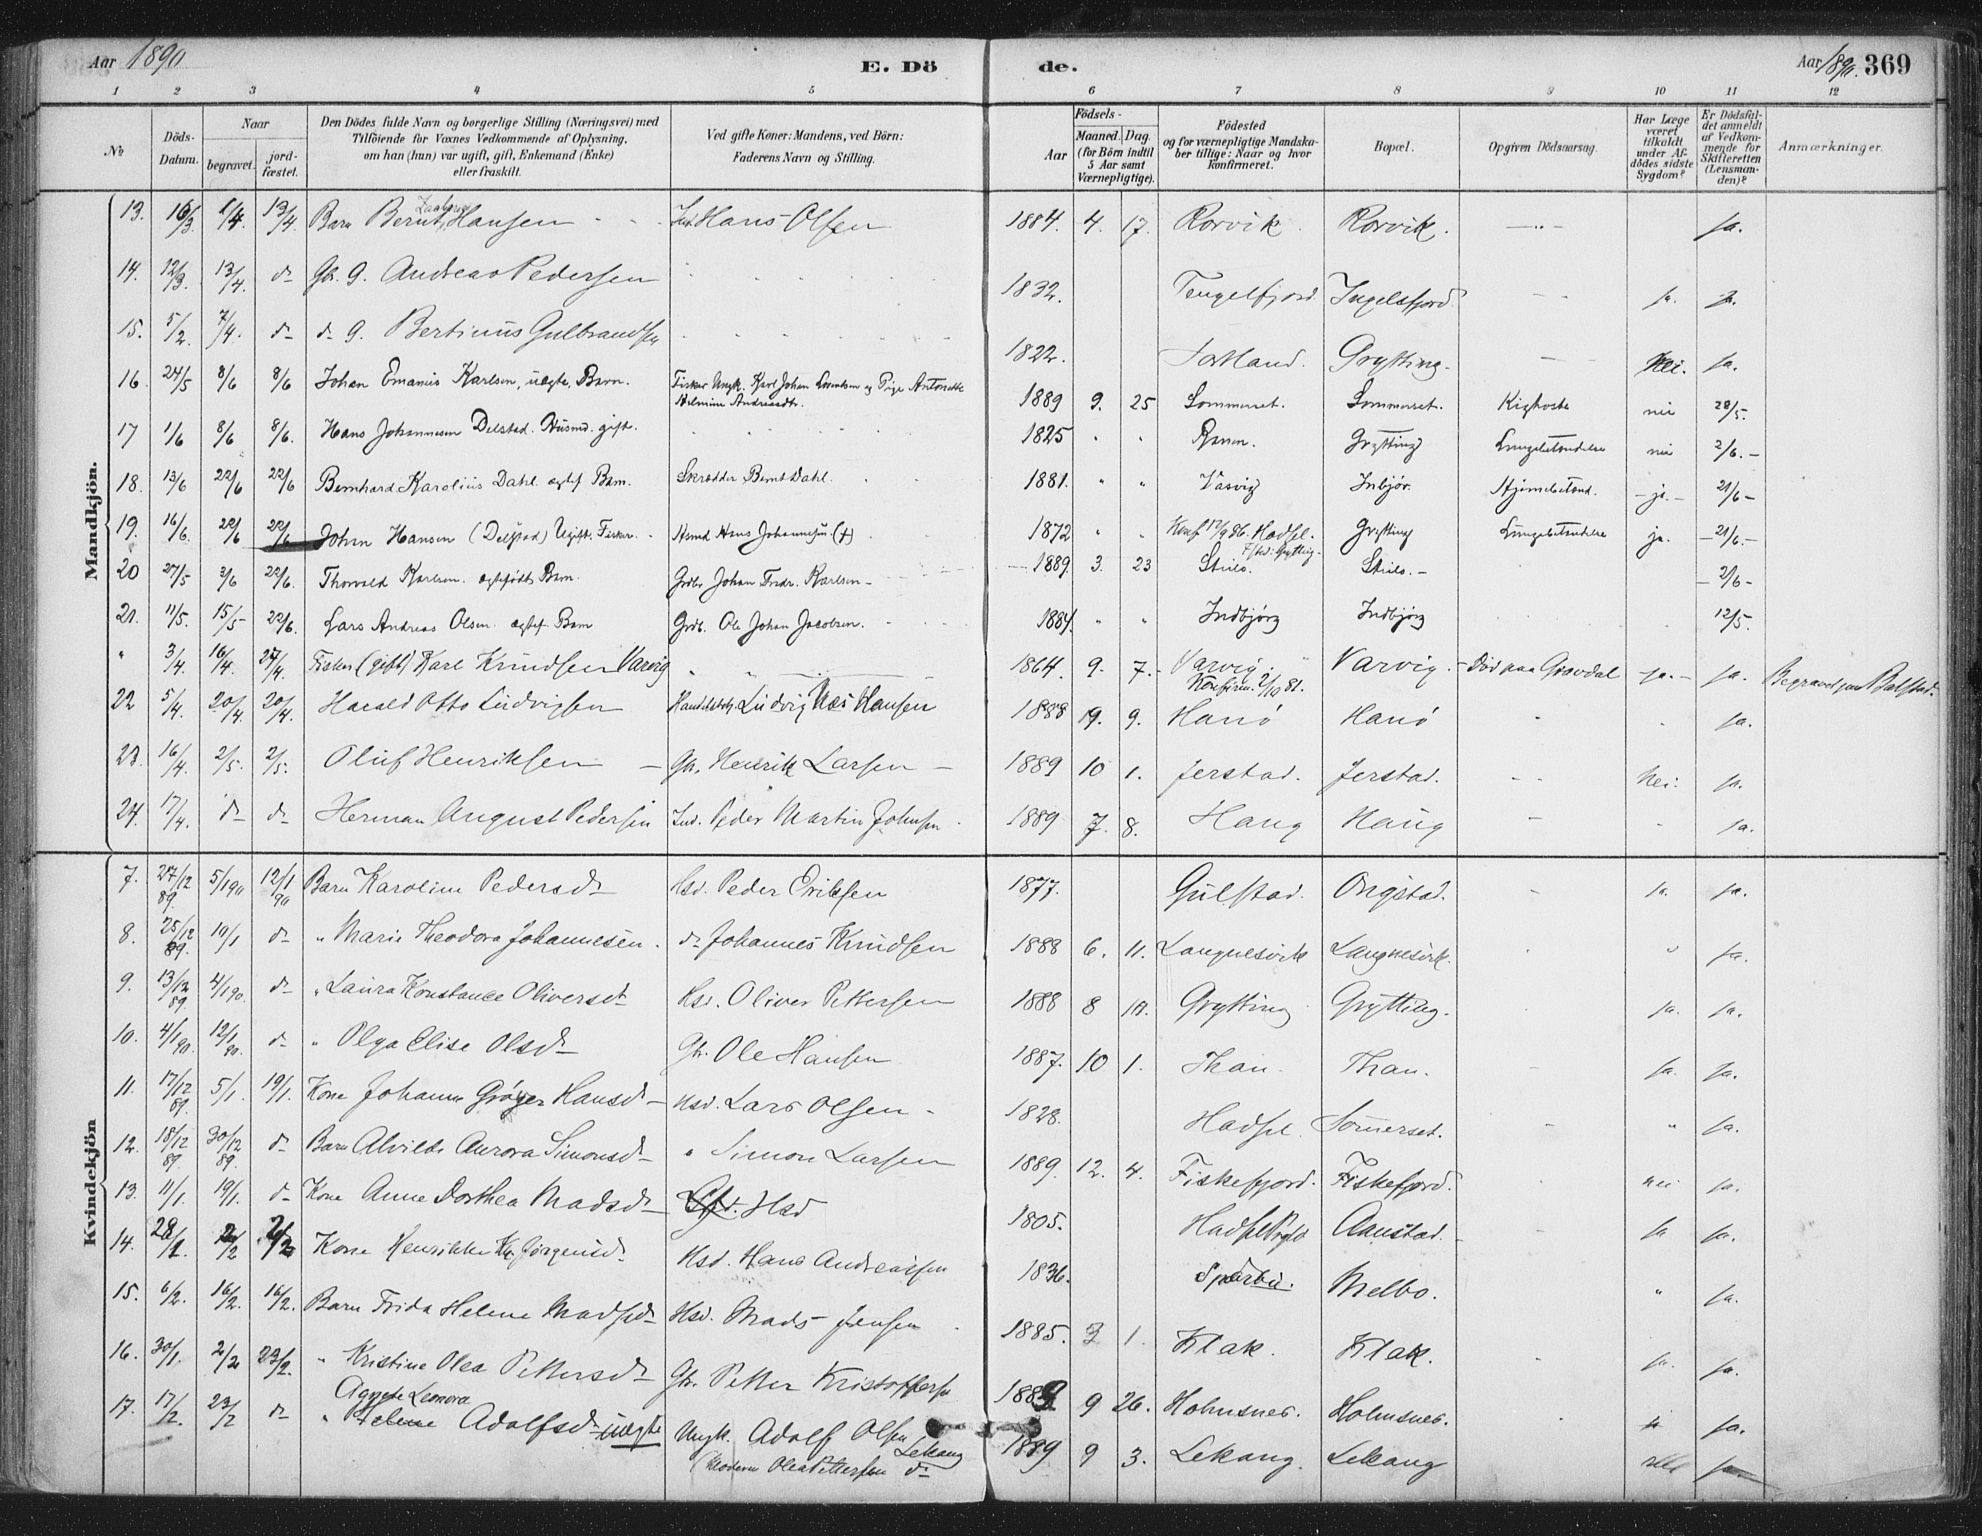 Aar 1890
E. Dö de.
Aar 1890. 369
1 2 3 4 5 6 7 8 9 10 11 12
No
Döds-Datum.
Naar begravet. jord-fæstet.
Den Dödes fulde Navn og borgerlige Stilling (Næringsvei) med Tilföiende for Voxnes Vedkommende af Oplysning, om han (hun) var ugift, gift, Enkemand (Enke) eller fraskilt.
Ved gifte Koner: Mandens, ved Börn: Faderens Navn og Stilling.
Födsels-
Aar
Maaned. Dag.
(for Börn indtil 5 Aar samt Værnepligtige).
Födested og for værnepligtige Mandskaber tillige: Naar og hvor Konfirmeret.
Bopæl.
Opgiven Dödsaarsag.
Har Læge været tilkaldt under Afdödes sidste Sygdom?
Er Dödsfaldet anmeldt af Vedkommende for Skifteretten (Lensmanden)?
Anmærkninger.
Mandkjön.
13. 16/3 1/4 13/4 Barn Bernt Hansen Ind. Hans Olsen 1884. 4. 17. Rorvik. Rorvik. ja.
14. 12/3 13/4 d Gbr. g. Andreas Pedersen 1832. Tengelfjord Ingelsfjord ja. ja.
15. 5/2 7/4 d d g. Bertinus Gulbrandsen 1822. Sortland. Grytting. Nei. ja.
16 24/5 8/6 8/6 Johan Emanius Karlsen, uægte Barn. Fisker Ungk. Karl Johan Lorentsen og Pige Antonette Helmine Andreasdtr. 1889 9. 25 Sommerset. Sommerset. Kighoste nei 28/5.
17 1/6 8/6 8/6. Hans Johannesen Delstad. Husmd. gift. 1825 " " Ranen. Grytting Lungebetændelse nei 2/6.-
18. 13/6 22/6 22/6 Bernhard Karolius Dahl. ægtef Barn. Skrædder Bernt Dahl. 1881. " " Vasvig Inbjør. Hjernebetænd. - ja. - 21/6 -
19. 16/6. 22/6 22/6 Johan Hansen (Delstad) Ugift. Fisker. Hsmd Hans Johannesen (†) 1872 " " Konf 12/9 86. Hadsel. Grytting Lungebetændelse ja. - 21/6.-
20 27/5 2/6 22/6. Thorvald Karlsen. ægtefødt Barn. Grdbr Johan Fredr. Karlsen - 1889. 3. 23 Skiilo. Skiilo. - - 2/6 -
21. 11/5. 15/5 22/6. Lars Andreas Olsen. ægtef. Barn Grdb. Ole Johan Jacobsen. 1884. " " Indbjørg Indbjørg 12/5.
" 3/4. 16/4. 27/4. Fisker (gift) Karl Knudsen Varvig 1864. 9. 7. Varvig. Konfirm. 2/10 81. Varvig. Død paa Gravdal - ja. - ja. Begravet paa Balstad.
22 5/4. 20/4. 20/4. Harald Otto Ludvigsen Handelsb. Ludvig Hansen 1888 9. 9. Hanø Hanø ja.
23. 16/4. 2/5. 2/5. Oluf Henriksen Gbr. Henrik Larsen 1889 10 1. Jerstad. Jerstad. Nei. ja.
24. 17/4. d d Herman August Pedersen Ind. Peder Martin Johnsen 1889 7. 8. Haug Haug ja.
Kvindekjön
7. 27/12 89. 5/1 90 12/1 90 Barn Karoline Pedersd Hsd. Peder Eriksen 1877. Gulstad. Ongstad. ja. ja.
8. 25/12 89. 19/1 d " Marie Theodora Johannesen. d Johannes Knudsen 1888 6. 11. Langnesvik Langnesvik. " ja.
9. 13/12 89. 4/1 90. d " Laura Konstance Oliversd Hsd. Oliver Pettersen 1888 8 10. Grytting Grytting. ja. ja.
10. 4/1 90. 12/1 90. d " Olga Elise Olsd Gbr. Ole Hansen 1887. 10 1. Than. Thau. ja. ja.
11. 17/12 89. 5/1. 19/1. Kone Johanna Grøger Hansd Hsd. Lars Olsen 1828. Hadsel. Sommerset. " ja.
12. 18/12 89. 30/12 89. d Barn Alvilde Aurora Simonsd " Simon Larsen 1889. 12. 4. Fiskefjord. Fiskefjord. nei ja.
13. 11/1. 19/1. d Kone Anne Dorthea Madsd Hsd 1805. Hadsel Aanstad. ja ja.
14. 28/1. 2/2 2/2 Kone Henrikke Jørgensd Hsd. Hans Andreassen 1836. Sparbu. Melbo. " ja.
15. 6/2. 16/2. 16/2. Barn Frida Helene Madsd Hsd. Mads Jensen 1885. 3 1. Klak. Klak. ja. ja.
16. 30/1. 2/2 23/2. " Kristine Olea Pettersd Gbr. Petter Kristoffersen 1889 9 26. Holmsnes. Holmsnes. ja.
17. 17/2. 23/2 d " Agnete Leonora Helene Adolfsd uægte Ungk. Adolf Olsen Lekang (Moderen Olea Pettersen d 1889 9 3. Lekang. Lekang ja